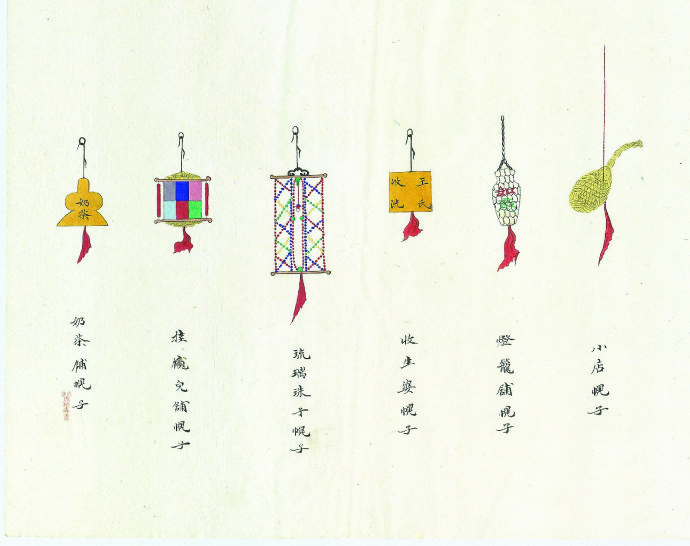 小店幌子
燈籠舖幌子
王氏
收洗
收生婆幌子
琉璃珠子幌子
挂纓兒舖幌子
奶茶
奶茶舖幌子